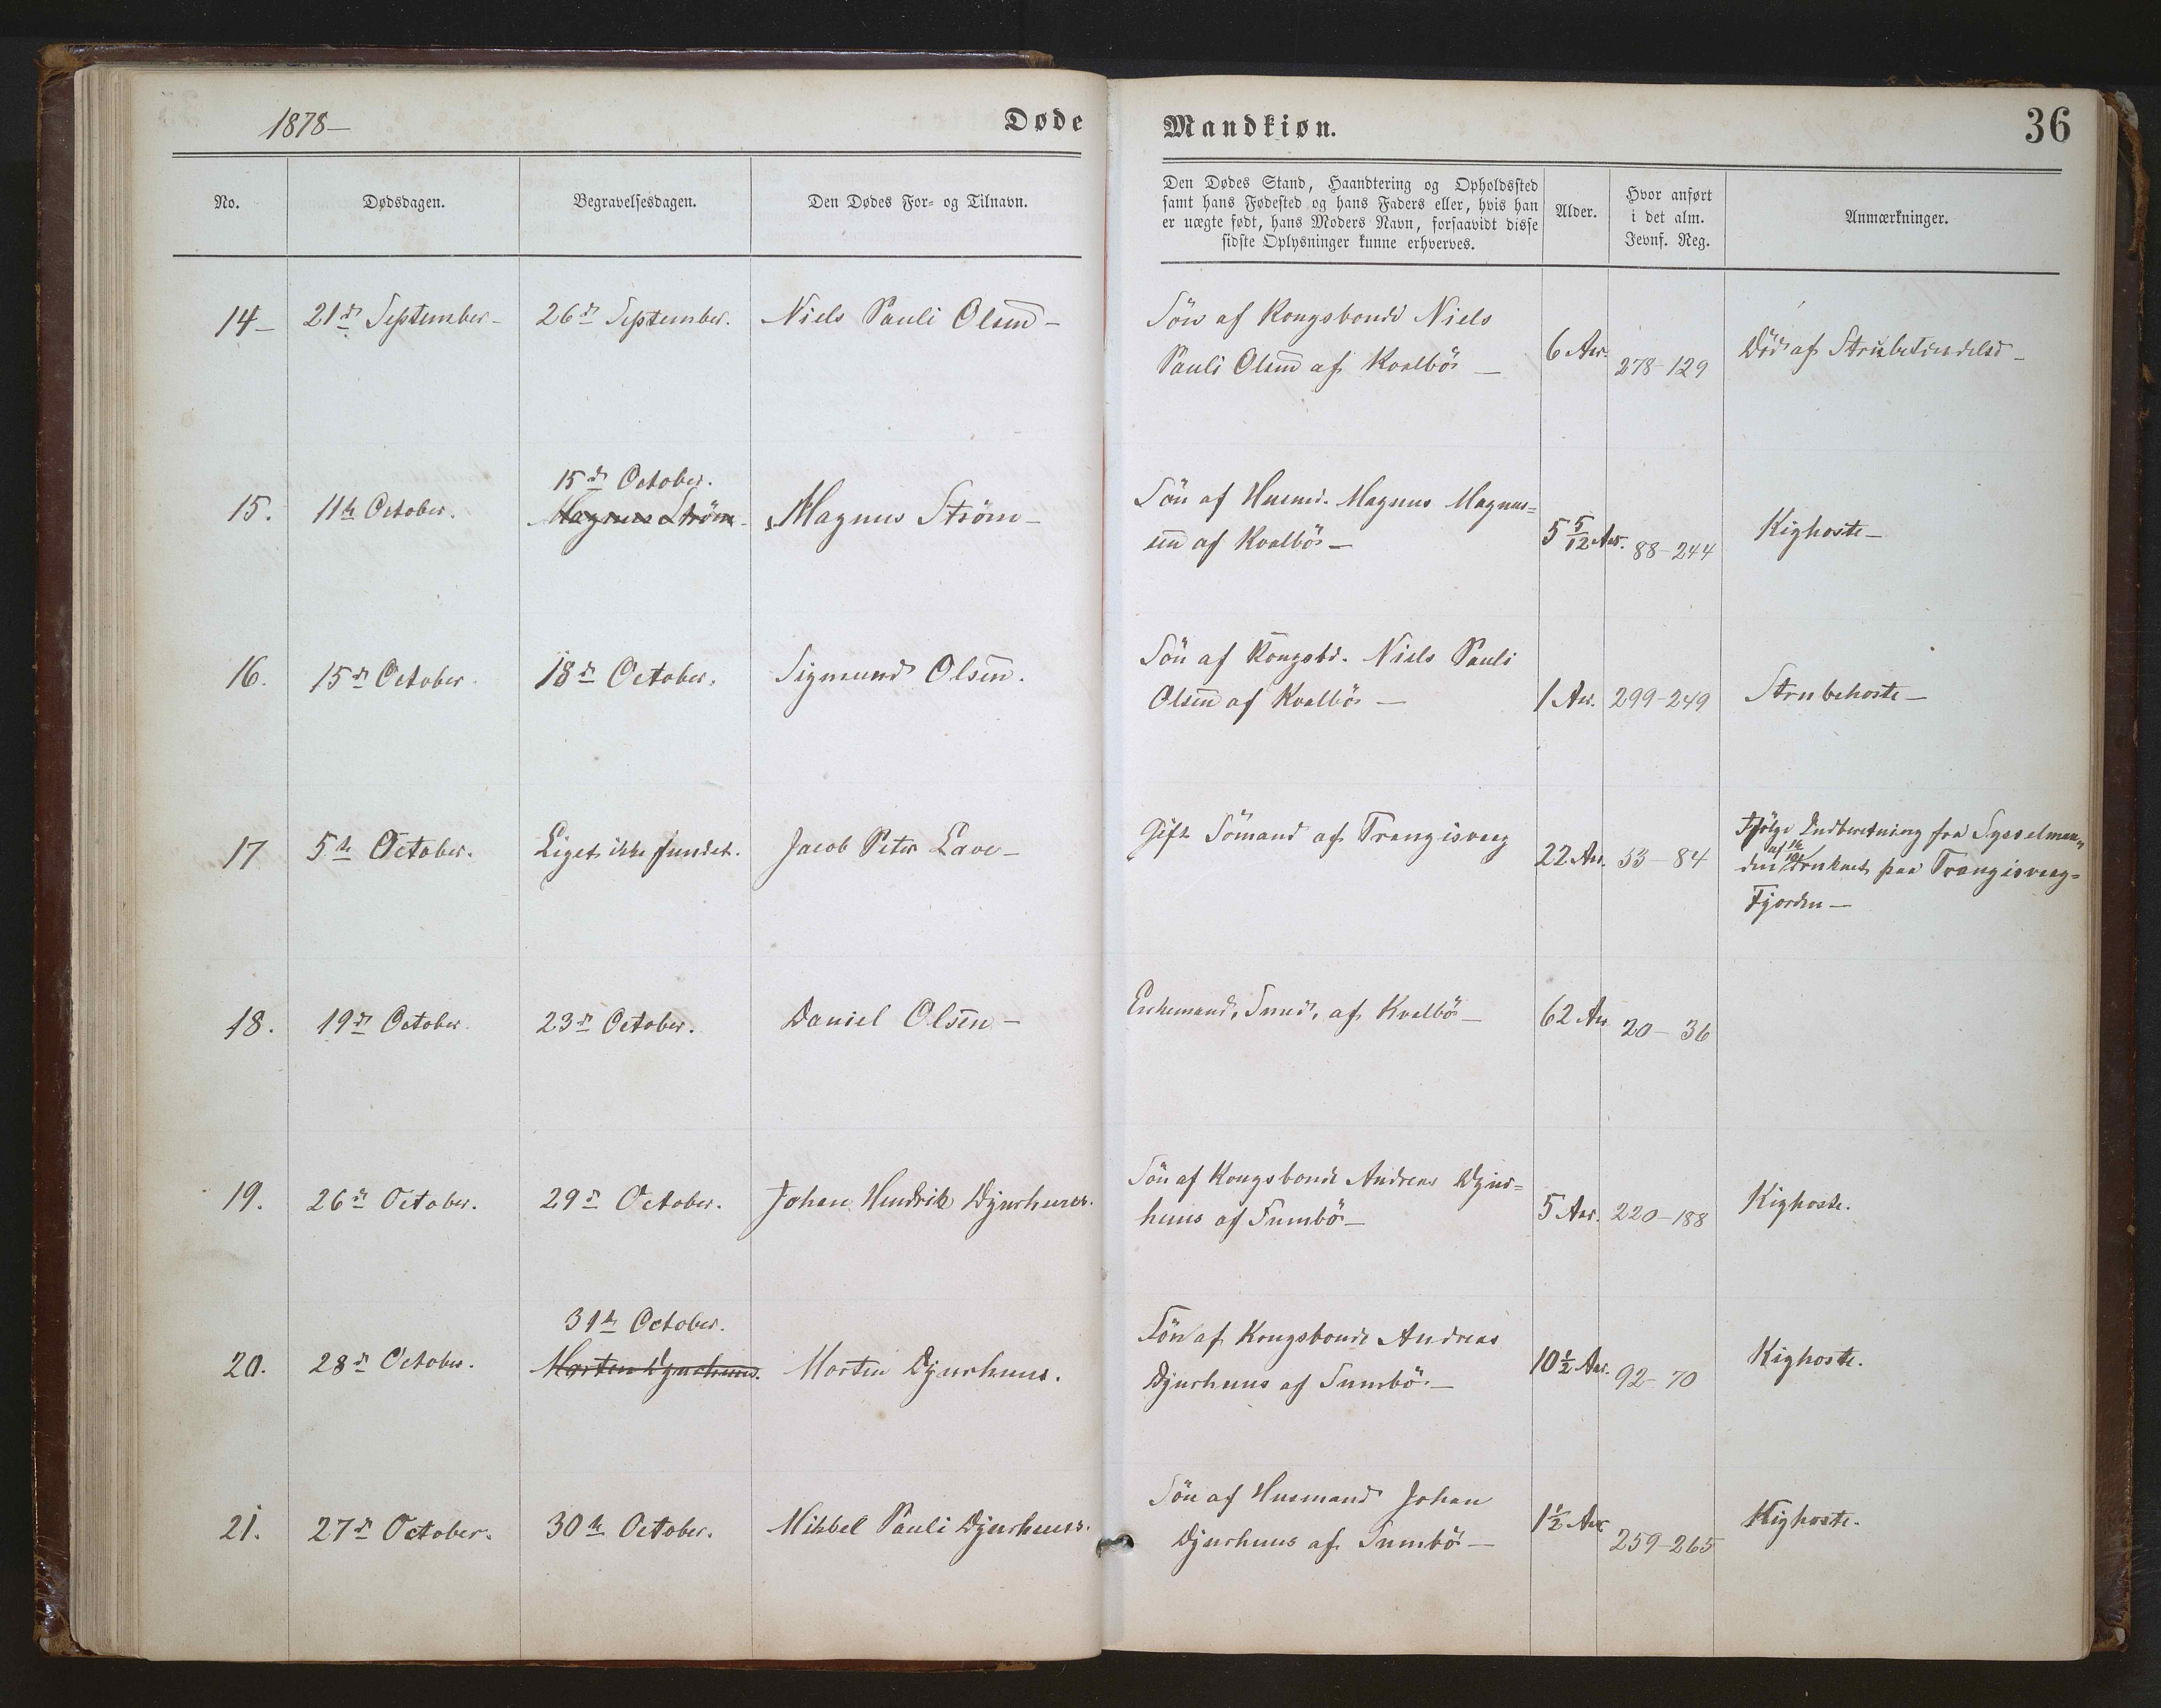 1878-
Døde
Mandkiøn.
36
No.
Dødsdagen.
Begravelsesdagen.
Den Dødes For- og Tilnavn.
Den Dødes Stand, Haandtering og Opholdssted
samt hans Fødested og hans Faders eller, hvis han
er uægte født, hans Moders Navn, forsaavidt disse
sidste Oplysninger kunne erhverves.
Alder.
Hvor anført
i det alm.
Jevnf. Reg.
Anmærkninger.
14-
21de September-
26de September.
Niels Pauli Olsen-
Søn af Kongsbonde Niels
Pauli Olsen af Kvalbø-
6 Aar.
278-129
Død af Strubebetændelse-
15.
11te October.
15de October.
Magnus Strøm-
Magnus Strøm-
Søn af Husmd. Magnus Magnus=
sen af Kvalbø-
5 5/12 Aar.
88-244
Kighoste-
16.
15de October.
18de October.
Sigmund Olsen.
Søn af Kongsbd. Niels Pauli
Olsen af Kvalbø-
1 Aar.
299-249
Strubehoste-
17
5te October.
Liget ikke fundet.
Jacob Peter Lave-
Gift Sømand af Trangisvaag
22 Aar.
53-84
Ifølge Indberetning fra Sysselman=
den af druknet paa Trangisvaag=
Fjorden-
18.
19de October.
23de October.
Daniel Olsen-
Enkemand, Smed, af Kvalbø-
62 Aar
20-36
19.
26de October.
29de October.
Johan Hendrik Djurhuus.
Søn af Kongsbonde Andreas Djur=
huus af Sumbø-
5 Aar.
220-188
Kighoste.
20.
28de October.
31te October.
Morten Djurhuus.
Morten Djurhuus.
Søn af Kongsbonde Andreas
Djurhuus af Sumbø-
10 1/2 Aar.
92-70
Kighoste.
21.
27de October.
30te October.
Mikkel Pauli Djurhuus.
Søn af Husmand Johan
Djurhuus af Sumbø-
1 1/2 Aar
259-265
Kighoste.